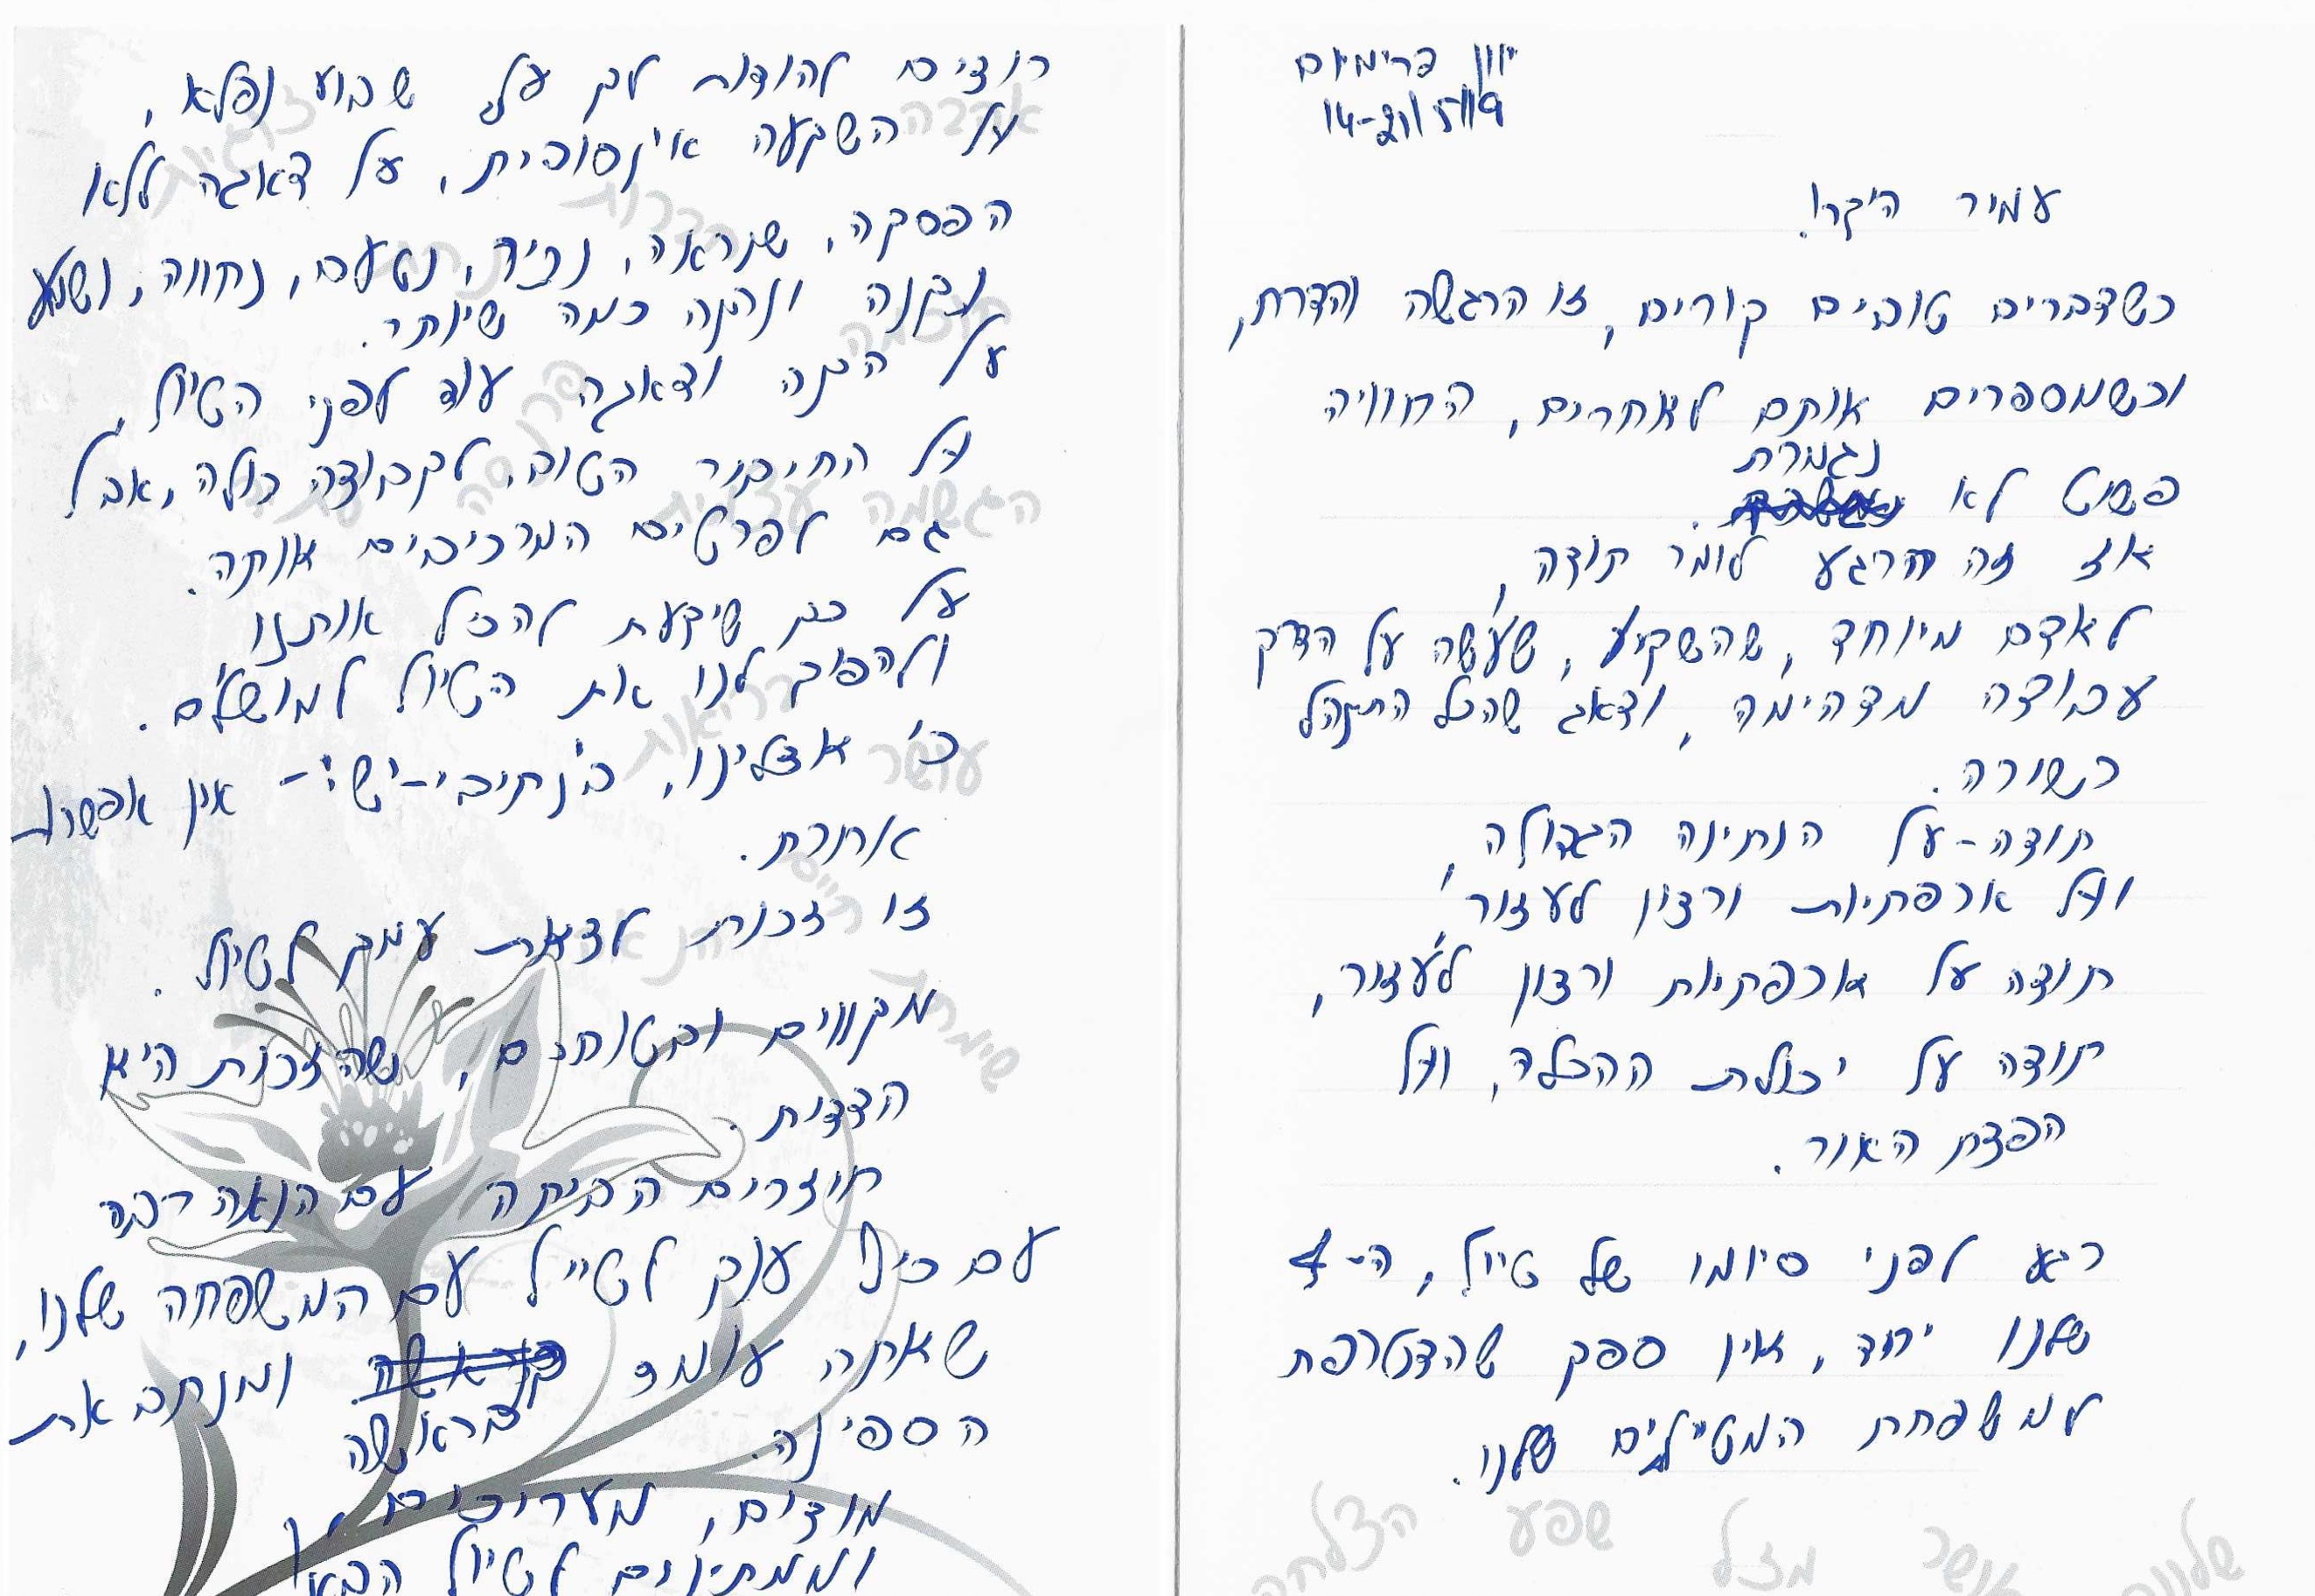 יוון פרימיום
14-21/5/19
עמיר היקר!
כשדברים טובים קורים, זו הרגשה נהדרת,
וכשמספרים אותם לאחרים, החוויה
פשוט לא נגמרת.
אז זה הרגע לומר תודה,
לאדם מיוחד, שהשקיע, שעשה על הדרך
עבודה מדהימה, ודאג שהכל התנהל
כשורה.
תודה - על הנתינה הגדולה,
ועל אכפתיות ורצון לעזור,
תודה על אכפתיות ורצון לעזור,
תודה על יכולת ההכלה, ועל
הפצת האור.
רגע לפני סיומו של טיול, ה-4
שלנו יחד, אין ספק שהצטרפת
למשפחת המטיילים שלנו.
שלווה אושר מזל שפע הצלחה
רוצים להודות לך על שבוע נפלא,
על השקעה אינסופית, על דאגה ללא
הפסקה, שנראה, נכיר, נטעם, נחווה, נשמע
נקנה ונהנה כמה שיותר.
על הכנה ודאגה עוד לפני הטיול,
על החיבור הטוב, לקבוצה כולה, אבל
גם לפרטים המרכיבים אותה.
על כך שידעת להכיל אותנו
ולהפוך לנו את הטיול למושלם.
כי אצלינו, ב'נתיבי-ישי'- אין אפשרות
אחרת.
זו זכות לצאת עמך לטיול.
מקווים ובטוחים, שהזכות היא
הדדית.
חוזרים הביתה עם הנאה רבה
עם כיף ענק לטייל עם המשפחה שלנו,
שאתה עומד בראשה ומנתב את
הספינה.
מודים, מעריכים
וממתינים לטיול הבא
אהבה
זוגיות
חברות
חוכמה
פרנסה
הגשמה עצמית
בריאות
עושר
חיים
שימחה